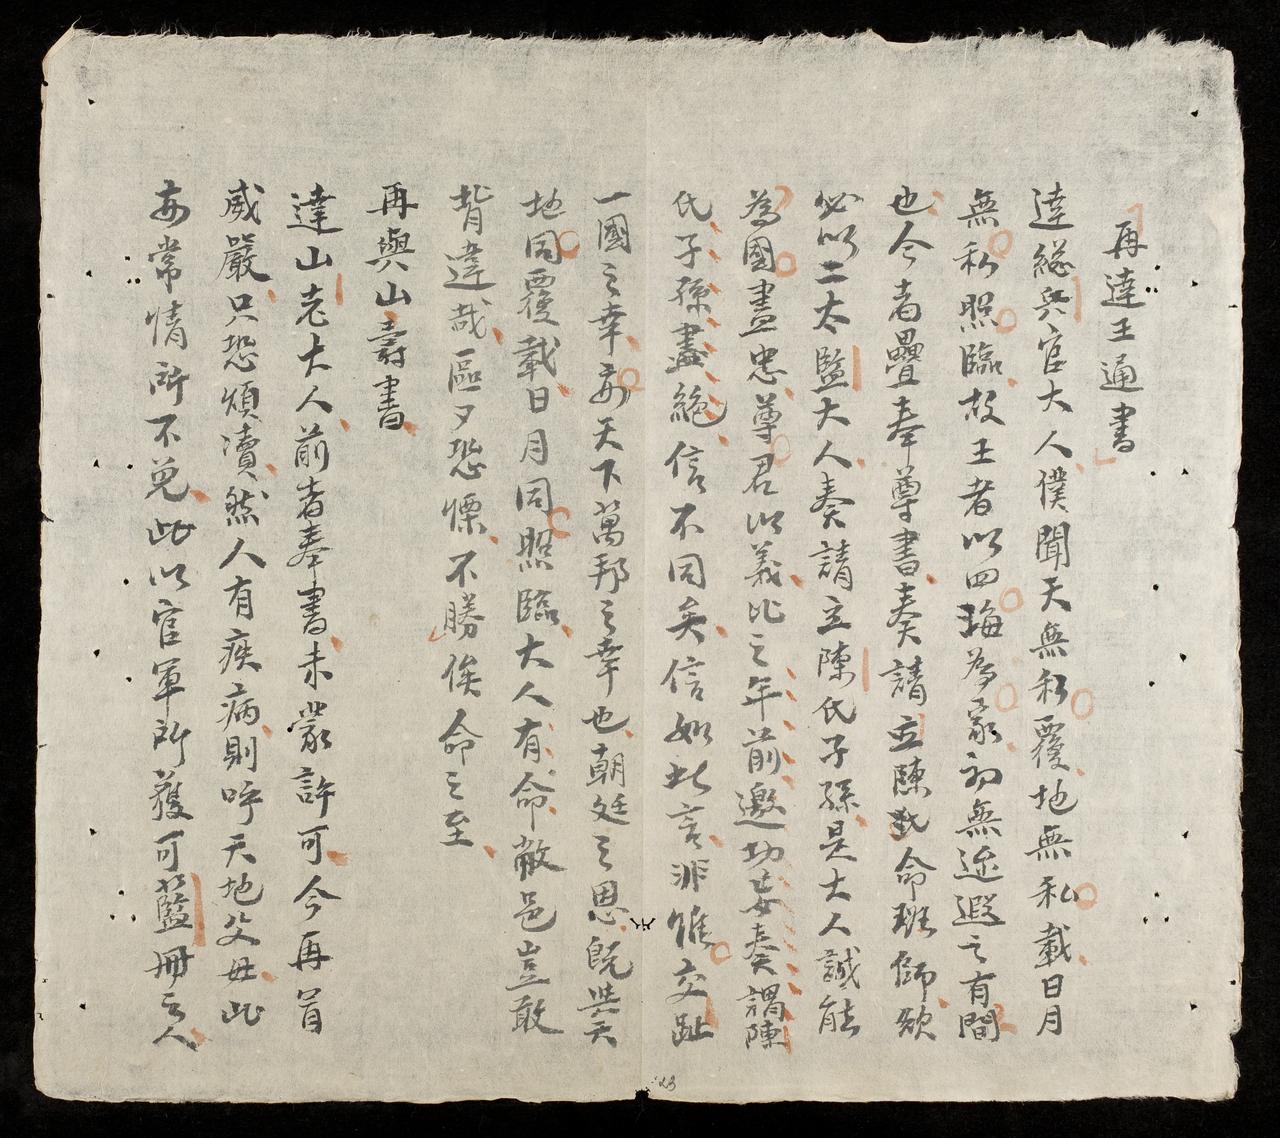 再達王通書
達總兵官大人僕聞天無私覆地無私載日月
無私照臨故王者以四海為家初無迩遐之有間
也今者疊奉尊書奏請立陳氏命班師欲
必以二太監大人奏請立陳氏子孫是大人誠能
為國盡忠尊君以義比之年前邀功妄奏謂陳
氏子孫盡絶信不同矣信如此言非惟交趾
一國之幸亦天下萬邦之幸也朝廷之恩既與天
地同覆載日月同照臨大人有命敝邑豈敢
背違哉區々恐慄不勝俟命之至
再與山壽書
達山老大人前者奉書未蒙許可今再冒
威嚴只恐煩瀆然人有疾病則呼天地父母此
亦常情所不免此以官軍所獲可藍冊之人